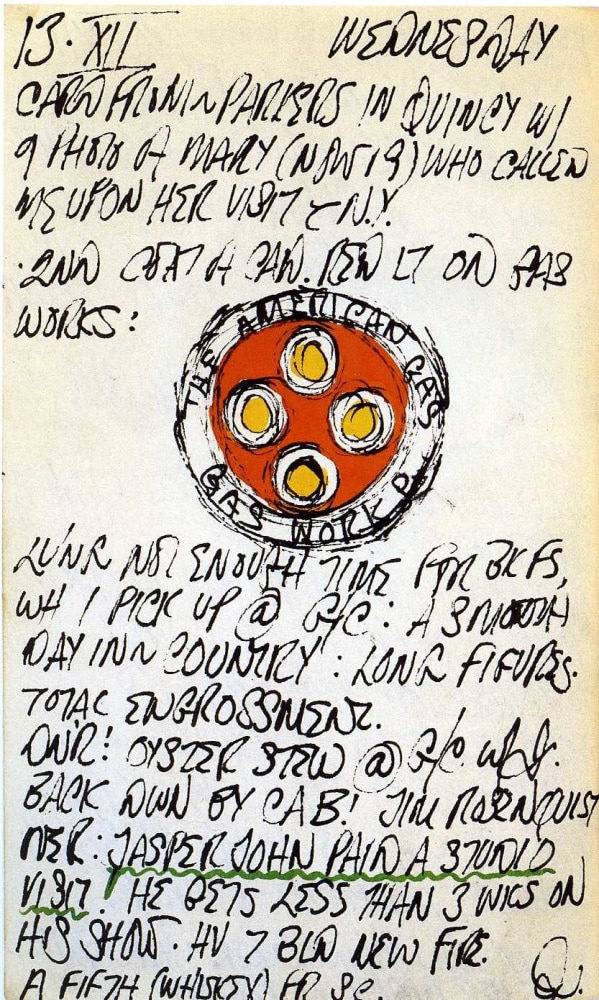 13. XII WEDNESDAY
CARD FROM PARKERS IN QUINCY W/
A PHOTO OF MARY (NOW 19) WHO CALLED
ME UPON HER VISIT N.Y.
.2ND COAT CAD. RED LT ON GAS
WORKS:
THE AMERICAN GAS
GAS WORKS
NOT ENOUGH TIME FOR BKFS,
WH I PICK UP @ G/C: A SMOOTH
DAY IN COUNTRY: FIGURES.
TOTAL ENGROSSMENT.
DNR! OYSTER STEW @ G/C W/
BACK DWN BY CAB! JIM ROSENQUIST
JASPER JOHN PAID A STUDIO
VISIT. HE GETS LESS THAN 3 WKS ON
HIS SHOW. HV 7 BLD NEW FIRE.
A FIFTH (WHISKEY) FR